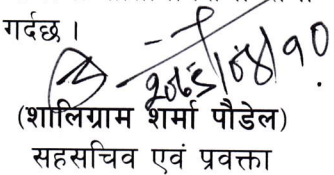 गर्दछ ।
२०७९/०४/१०
(शालिग्राम शर्मा पौडेल)
सहसचिव एवं प्रवक्ता